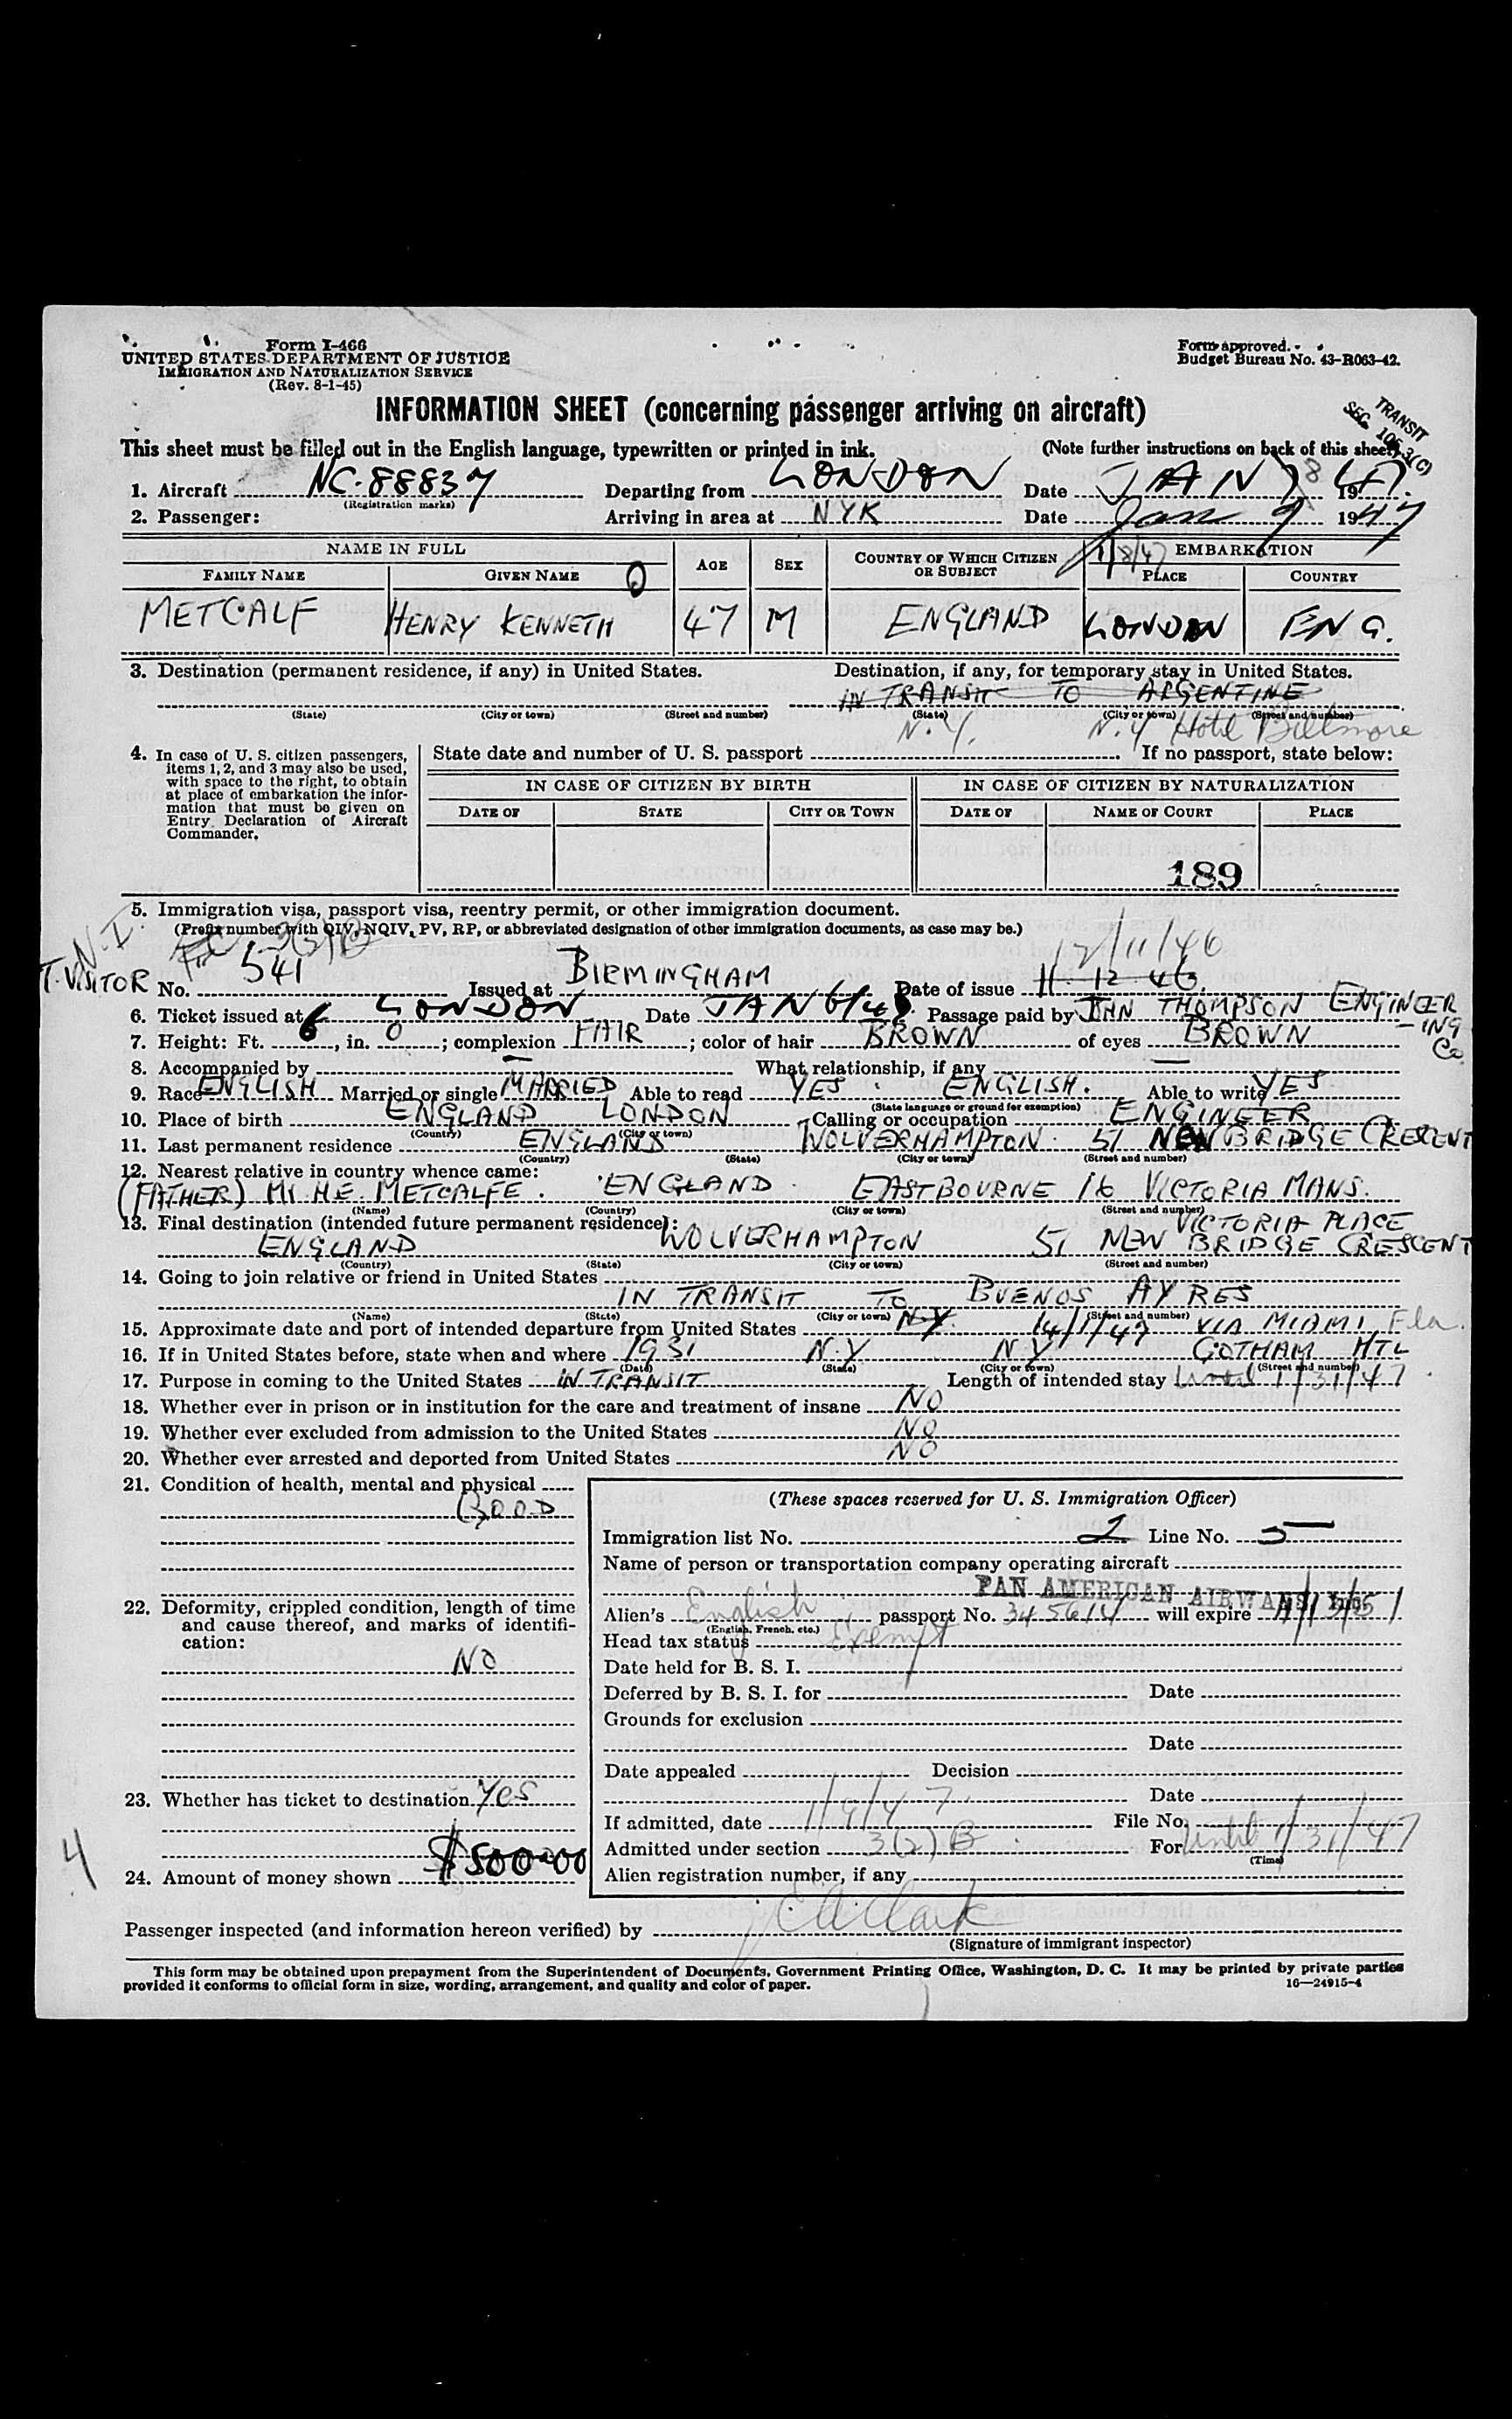 Form I-466
UNITED STATES DEPARTMENT OF JUSTICE
IMMIGRATION AND NATURALIZATION SERVICE
(Rev. 8-1-45)
Form approved.
Budget Bureau No. 43-R063-42.
INFORMATION SHEET (concerning passenger arriving on aircraft)
TRANSIT
SEC.
This sheet must be filled out in the English language, typewritten or printed in ink. (Note further instructions on back of this sheet)
1. Aircraft NC-88837 Departing from LONDON Date JAN 8 1947
(Registration marks)
2. Passenger: Arriving in area at NYK Date Jan 9 1947
NAME IN FULL AGE SEX COUNTRY OF WHICH CITIZEN OR SUBJECT 1/8/47 EMBARKATION
FAMILY NAME GIVEN NAME PLACE COUNTRY
METCALF HENRY KENNETH 47 M ENGLAND LONDON ENG.
3. Destination (permanent residence, if any) in United States. Destination, if any, for temporary stay in United States.
IN TRANSIT TO ARGENTINE
(State) (City or town) (Street and number) (State) (City or town) (Street and number)
N.Y. N.Y Hotel Biltmore
4. In case of U. S. citizen passengers, items 1, 2, and 3 may also be used, with space to the right, to obtain at place of embarkation the information that must be given on Entry Declaration of Aircraft Commander.
State date and number of U. S. passport If no passport, state below:
IN CASE OF CITIZEN BY BIRTH IN CASE OF CITIZEN BY NATURALIZATION
DATE OF STATE CITY OR TOWN DATE OF NAME OF COURT PLACE
189
5. Immigration visa, passport visa, reentry permit, or other immigration document.
(Prefix number with QIV, NQIV, PV, RP, or abbreviated designation of other immigration documents, as case may be.)
N.I. 3(2)B 12/11/46
T. VISITOR No. 541 Issued at BIRMINGHAM Date of issue 11-12-46
6. Ticket issued at LONDON Date JAN Passage paid by JHN THOMPSON ENGINEER-ING Co
7. Height: Ft. 6, in. 0; complexion FAIR; color of hair BROWN of eyes BROWN
8. Accompanied by — What relationship, if any —
9. Race ENGLISH Married or single MARRIED Able to read YES ENGLISH. Able to write YES
(State language or ground for exemption)
10. Place of birth ENGLAND LONDON Calling or occupation ENGINEER
(Country) (City or town)
11. Last permanent residence ENGLAND WOLVERHAMPTON 51 NEW BRIDGE CRESCENT
(Country) (State) (City or town) (Street and number)
12. Nearest relative in country whence came:
(FATHER) Mr H.E. METCALFE. ENGLAND EASTBOURNE 16 VICTORIA MANS.
(Name) (Country) (City or town) (Street and number)
VICTORIA PLACE
13. Final destination (intended future permanent residence):
ENGLAND WOLVERHAMPTON 51 NEW BRIDGE CRESCENT
(Country) (State) (City or town) (Street and number)
14. Going to join relative or friend in United States
IN TRANSIT TO BUENOS AYRES
(Name) (State) (City or town) (Street and number)
15. Approximate date and port of intended departure from United States N.Y. 14/1/47 VIA MIAMI Fla.
16. If in United States before, state when and where 1931 N.Y N.Y GOTHAM HTL
(Date) (State) (City or town) (Street and number)
17. Purpose in coming to the United States IN TRANSIT Length of intended stay Until 1/31/47
18. Whether ever in prison or in institution for the care and treatment of insane NO
19. Whether ever excluded from admission to the United States NO
20. Whether ever arrested and deported from United States NO
21. Condition of health, mental and physical
GOOD
22. Deformity, crippled condition, length of time and cause thereof, and marks of identification:
NO
23. Whether has ticket to destination yes
4
24. Amount of money shown $500-00
(These spaces reserved for U. S. Immigration Officer)
Immigration list No. 2 Line No. 5
Name of person or transportation company operating aircraft
PAN AMERICAN AIRWAYS, Inc.
Alien's English passport No. 345614 will expire
(English, French, etc.)
Head tax status Exempt
Date held for B. S. I.
Deferred by B. S. I. for Date
Grounds for exclusion
Date
Date appealed Decision
Date
If admitted, date 1/9/47. File No.
Admitted under section 3(2)B For Until 1/31/47
(Time)
Alien registration number, if any
Passenger inspected (and information hereon verified) by Clark
(Signature of immigrant inspector)
This form may be obtained upon prepayment from the Superintendent of Documents, Government Printing Office, Washington, D. C. It may be printed by private parties
provided it conforms to official form in size, wording, arrangement, and quality and color of paper. 16—24915-4